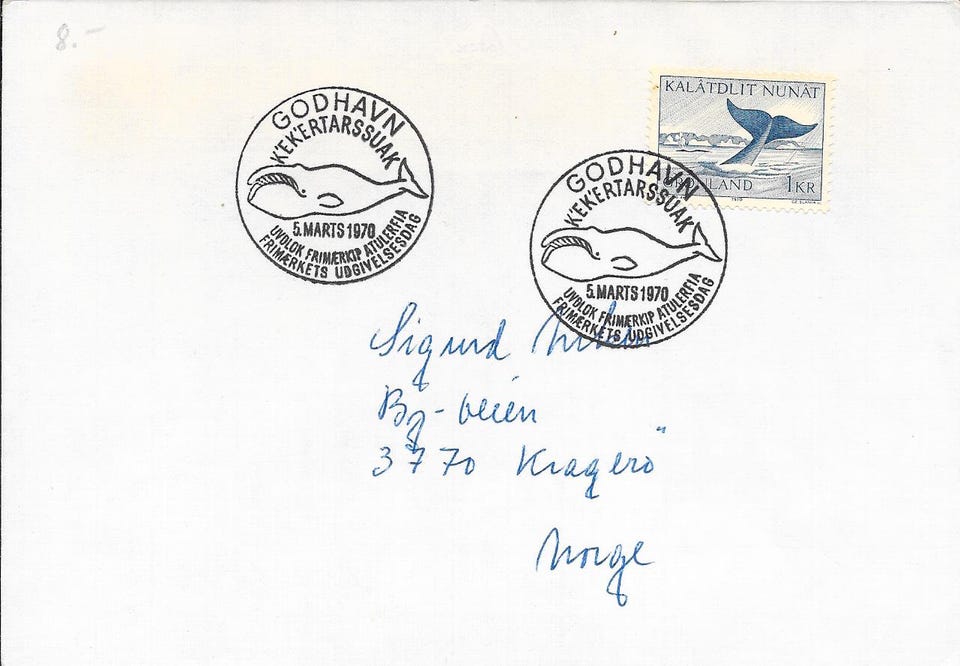 8.-
GODHAVN
K'EK'ERTARSSUAK
5.MARTS 1970
UVDLOK FRIMÆRKIP ATULERFIA
FRIMÆRKETS UDGIVELSESDAG
KALÂTDLIT NUNÂT
1KR
1970
CZ. SLANIA
GODHAVN
K'EK'ERTARSSUAK
5.MARTS 1970
UVDLOK FRIMÆRKIP ATULERFIA
FRIMÆRKETS UDGIVELSESDAG
Sigurd
-veien
3770 Kragerö
Norge